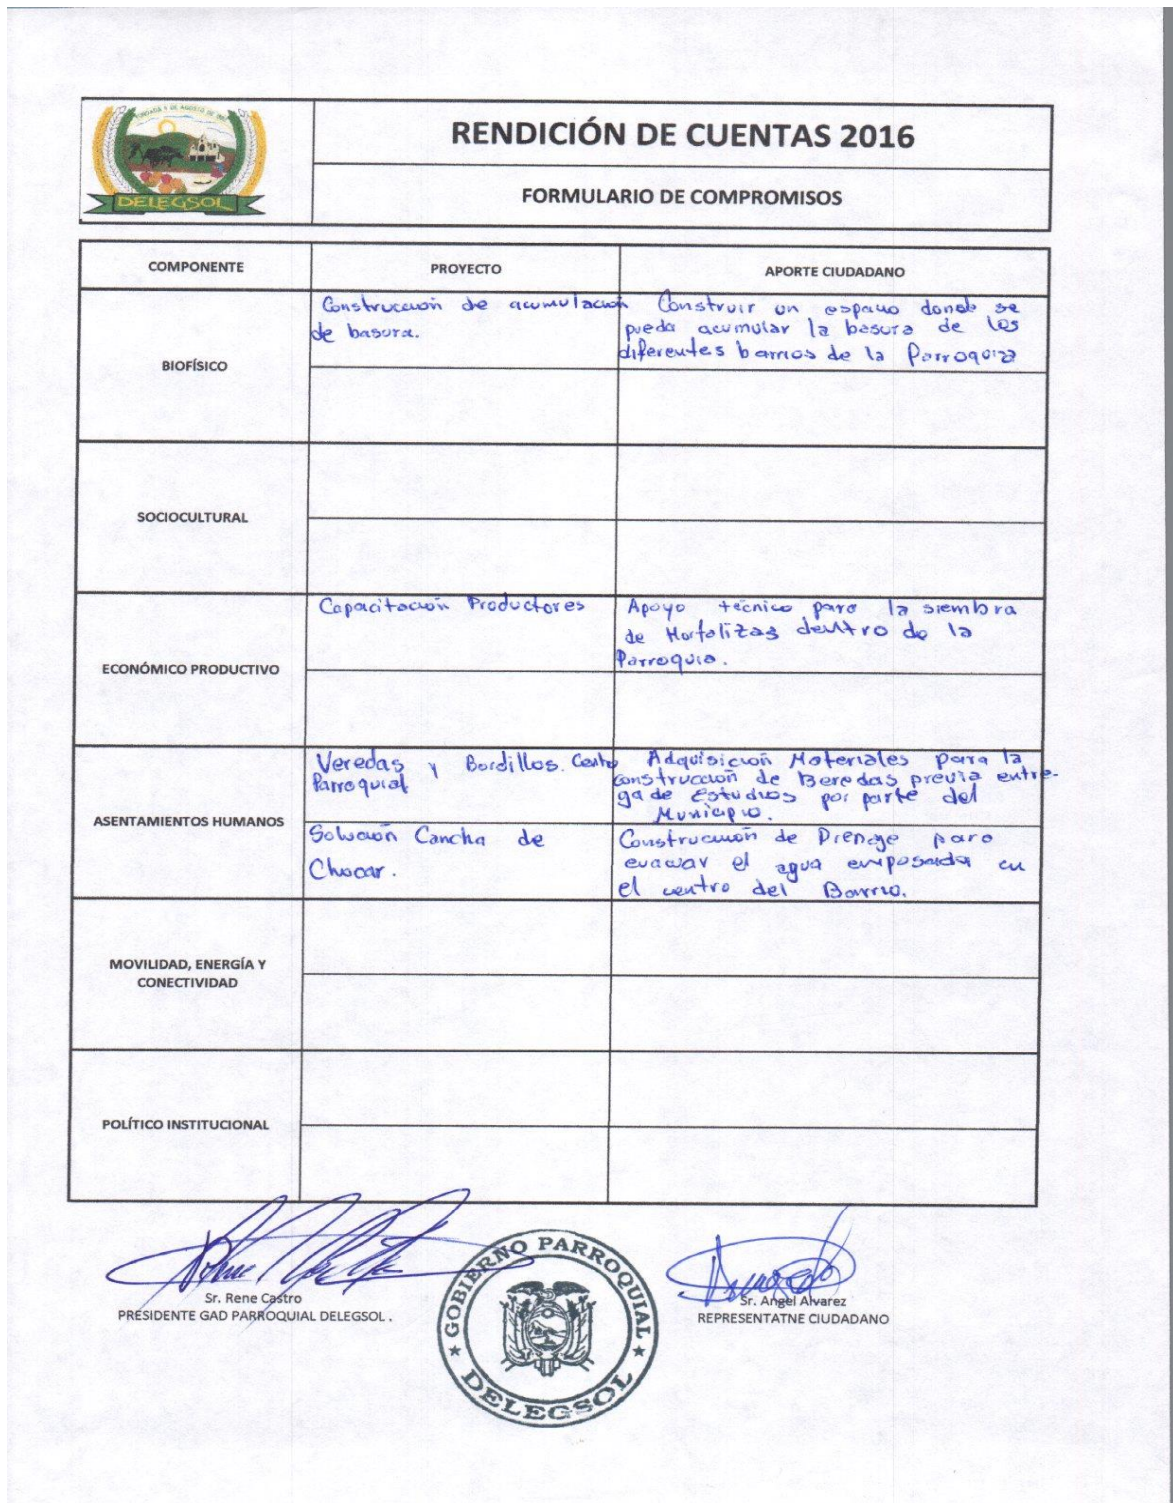 FUNDADA 4 DE AGOSTO DE
DELEGSOL
RENDICIÓN DE CUENTAS 2016
FORMULARIO DE COMPROMISOS
COMPONENTE
PROYECTO
APORTE CIUDADANO
BIOFÍSICO
Construccuión de acumulación
de basura.
Construir un espacio donde se
pueda acumular la basura de los
diferentes barrios de la Parroquia
SOCIOCULTURAL
ECONÓMICO PRODUCTIVO
Capacitación Productores
Apoyo técnico para la siembra
de Hortalizas dentro de la
Parroquia.
ASENTAMIENTOS HUMANOS
Veredas y Bordillos. Centro
Parroquial
Adquisición Materiales para la
construcción de Beredas previa entre-
ga de Estudios por parte del
Municipio.
Solución Cancha de
Chocar.
Construcción de Drenage para
evacuar el agua emposada en
el centro del Barrio.
MOVILIDAD, ENERGÍA Y
CONECTIVIDAD
POLÍTICO INSTITUCIONAL
Sr. Rene Castro
PRESIDENTE GAD PARROQUIAL DELEGSOL .
GOBIERNO PARROQUIAL
DELEGSOL
Sr. Angel Alvarez
REPRESENTATNE CIUDADANO